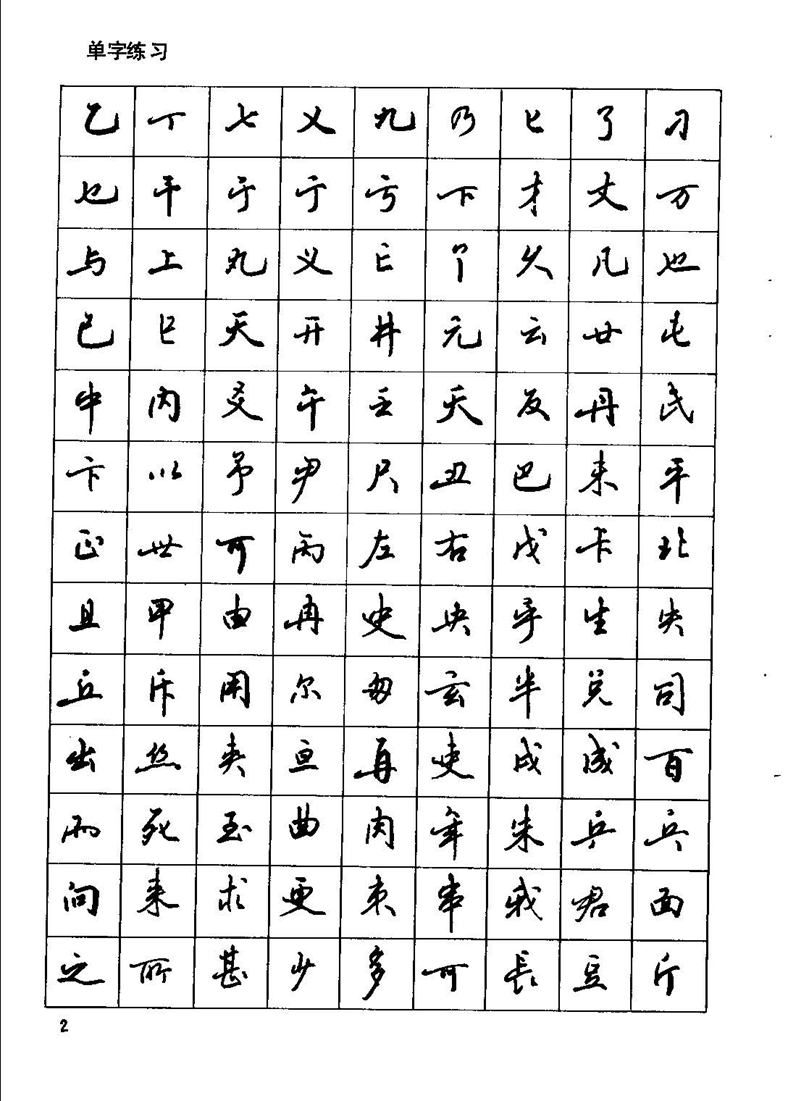 单字练习
乙 丁 七 乂 九 乃 匕 了 刁
乜 干 于 亍 亏 下 才 丈 万
与 上 丸 义 亡 卩 久 凡 也
已 巳 天 开 井 元 云 廿 屯
中 内 爻 午 壬 夭 反 丹 氏
卞 以 予 尹 尺 丑 巴 未 平
正 世 可 丙 左 右 戊 卡 北
且 甲 由 冉 史 央 乎 生 失
丘 斥 用 尔 匆 玄 半 司
出 丝 夹 亘 再 吏 戍 成 百
而 死 至 曲 肉 年 朱 兵 兵
向 来 求 更 束 串 我 君 面
之 所 甚 少 多 可 長 豆 斤
2